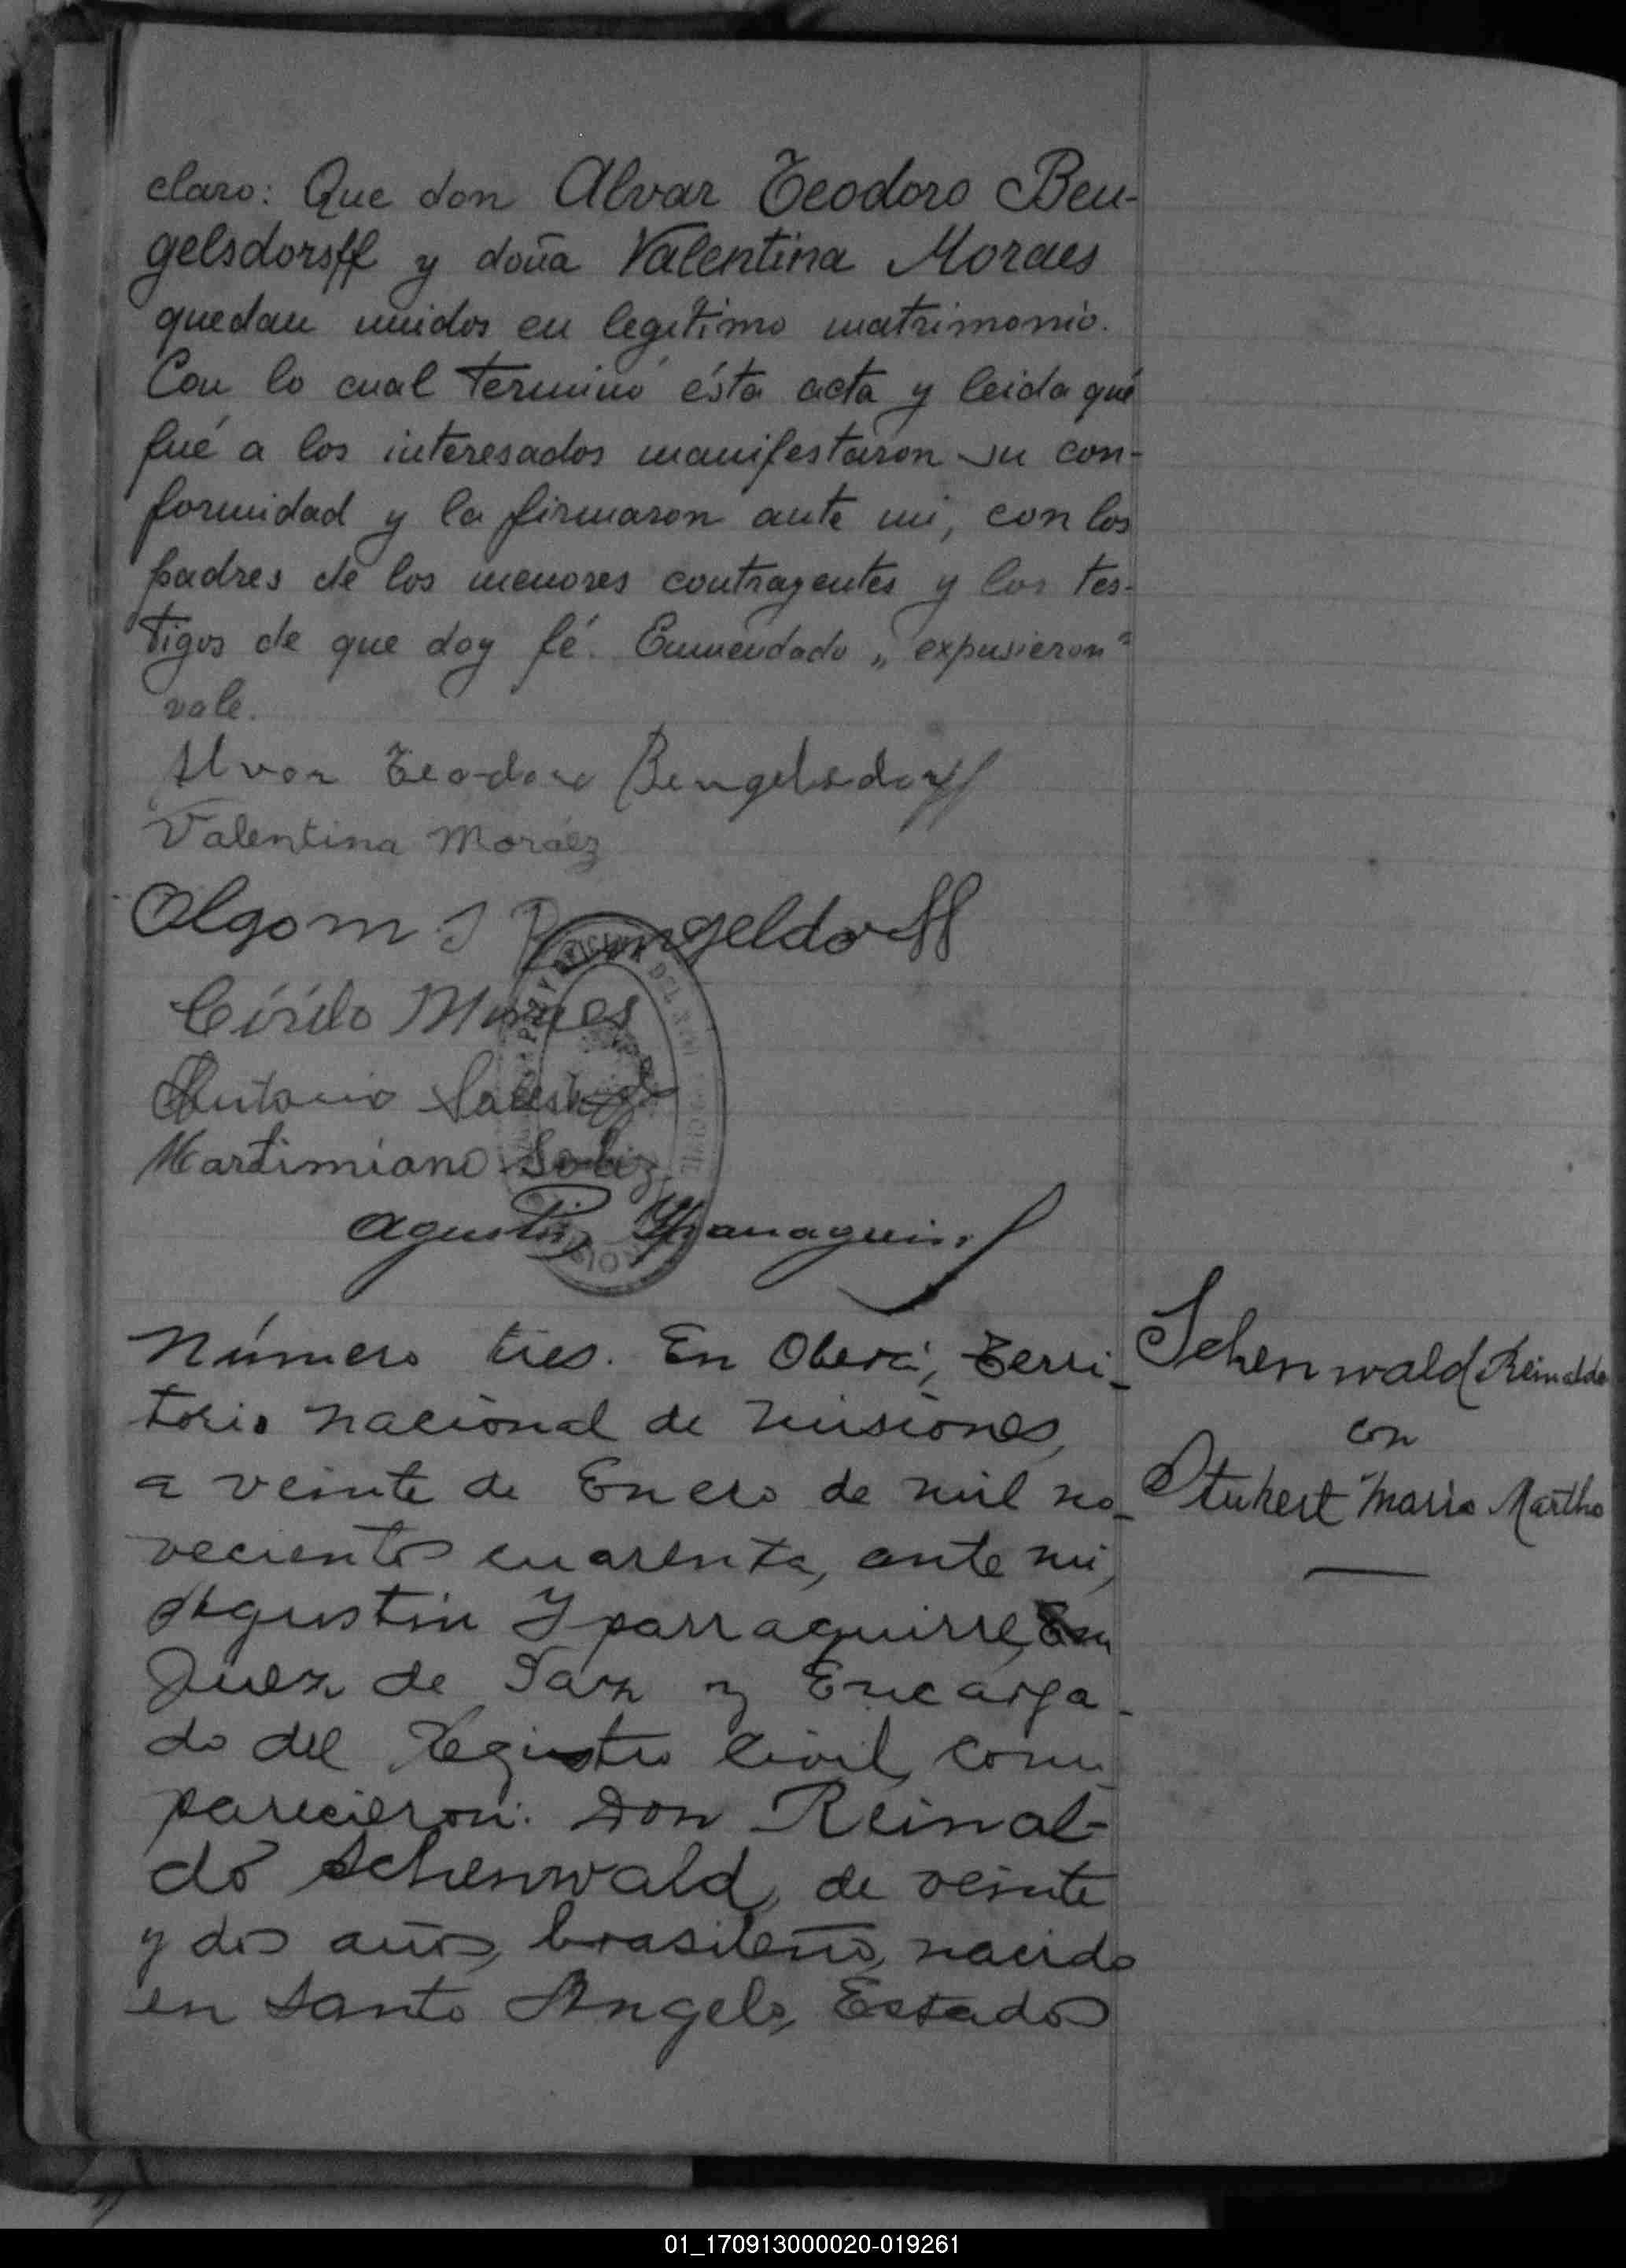 claro: Que don Alvar Teodoro Ben-
gelsdorsff y doña Valentina Moraes
quedan unidos en legítimo matrimonio.
Con lo cual terminó ésta acta y leida qué
fué a los interesados manifestaron su con-
formidad y la firmaron ante mi, con los
padres de los menores contrayentes y los tes-
tigos de que doy fé. Enmendado „expusieron"
vale.
Alvar Teodoro Bengelsdorff
Valentina Moráez
Bengeldorff
Cirilo Moraes
Antonio
Martimiano
Agustin Yparraguirre
Número tres. En Oberá, Terri-
torio nacional de Misiones,
a veinte de Enero de mil no-
vecientos cuarenta, ante mi,
Agustin Yparraguirre,
Juez de Paz y Encarga-
do del Registro Civil, com-
parecieron: Don Reinal-
do Schenwald, de veinte
y dos años, brasileño, nacido
en Santo Angelo, Estados
Schenwald Reinaldo
con
Stukert Maria Martha
01_170913000020-019261